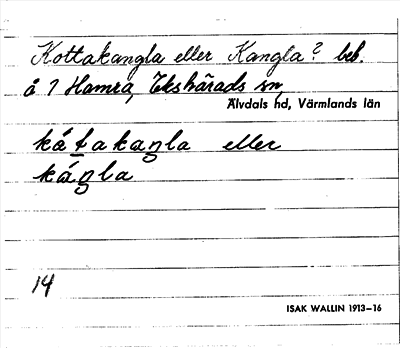 Kottakangla eller Kangla? beb.
å 7 Hamra, Ekshärads sn,
Älvdals hd, Värmlands län
kátakaŋla eller
káŋla
14
ISAK WALLIN 1913–16